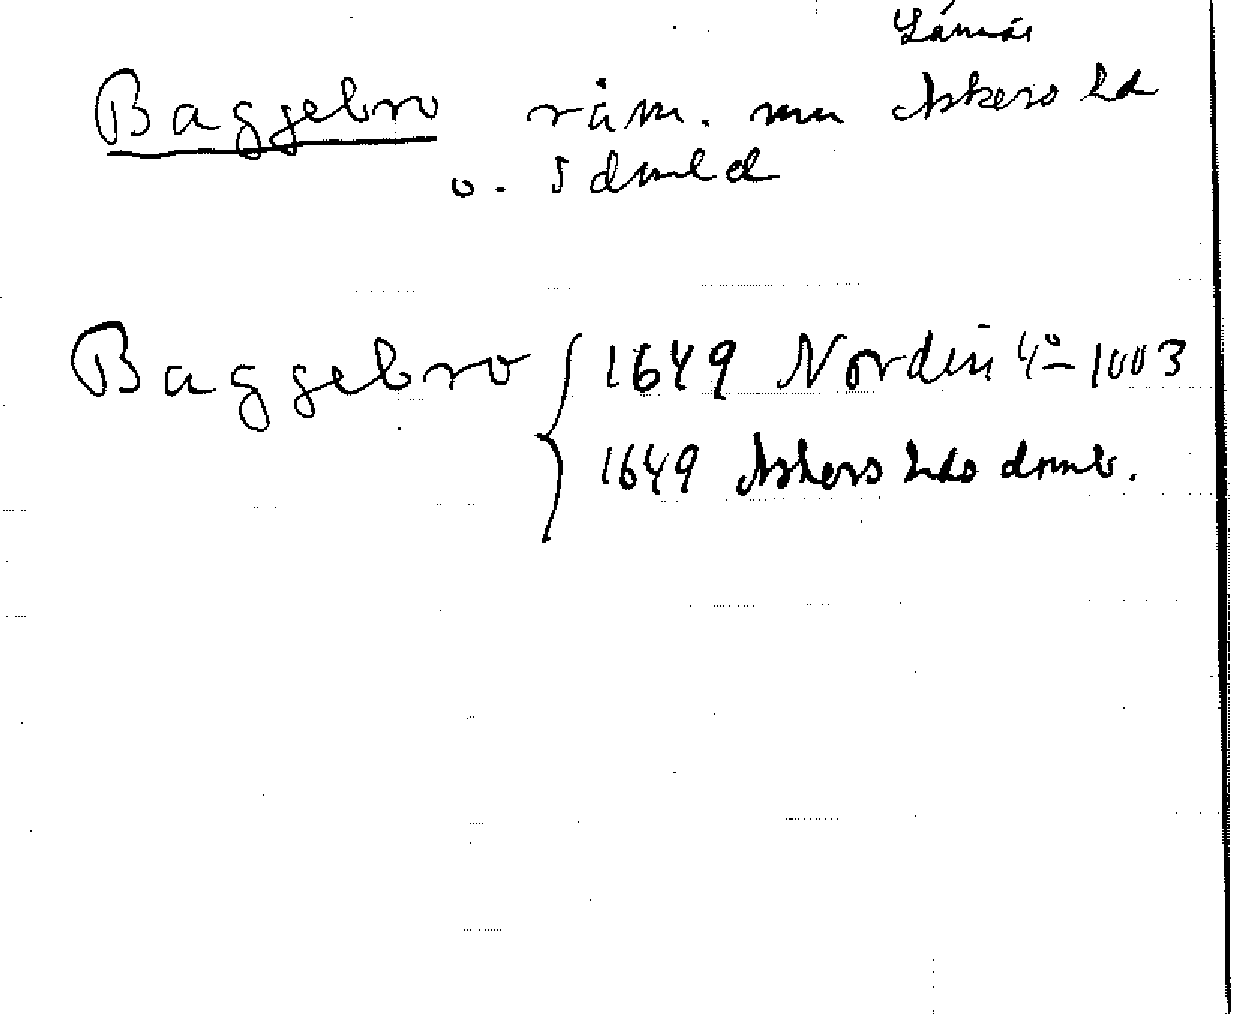 Lännäs
Baggebro råm. mn Askers hd
o. Sdmld
Baggebro { 1649 Nordin 4º 1003
1649 Askers hds domb.